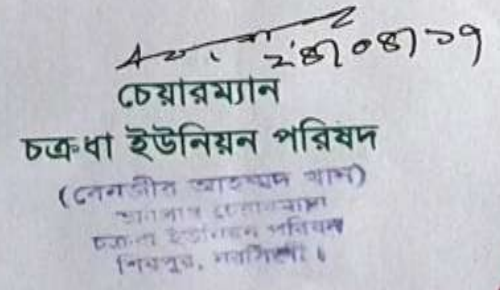 ২৪/০৪/১৭
চেয়ারম্যান
চক্রধা ইউনিয়ন পরিষদ
(বেনজীর আহম্মদ খান)
চেয়ারম্যান
চক্রধা ইউনিয়ন পরিষদ
শিবপুর, নরসিংদী।